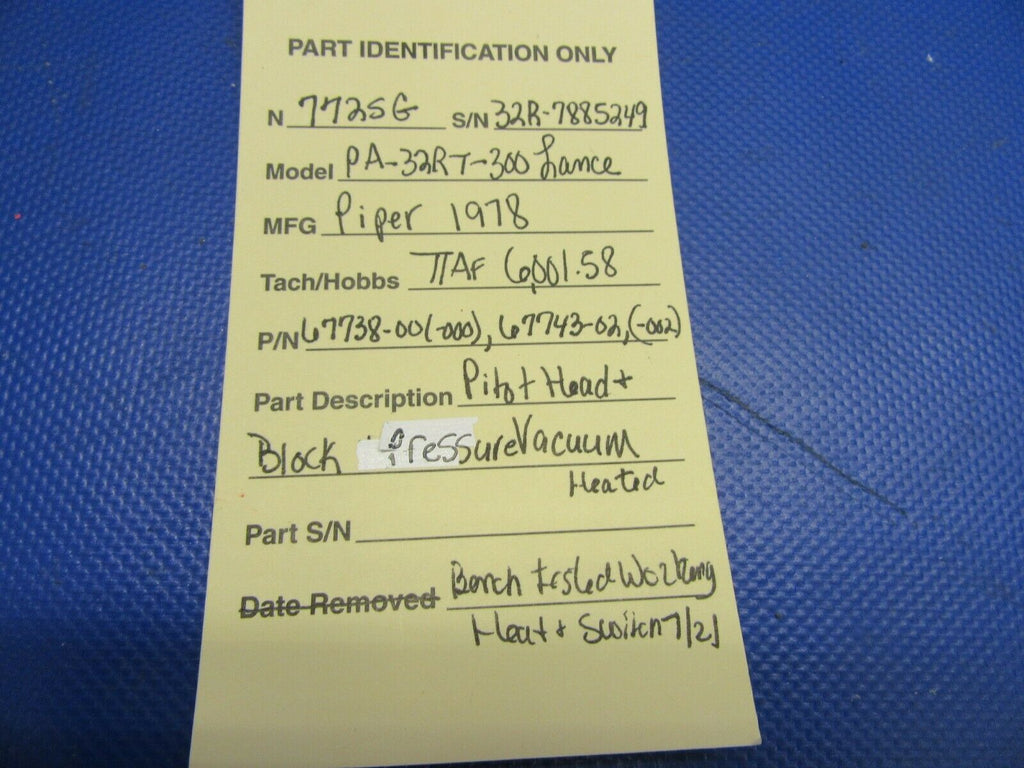 PART IDENTIFICATION ONLY
N 7725G S/N 32R-7885249
Model PA-32RT-300 Lance
MFG Piper 1978
Tach/Hobbs TTAF 6,001.58
P/N 67738-00(-000), 67743-02, (-002)
Part Description Pitot Head +
Block Pressure Vacuum
Heated
Part S/N
Date Removed Bench tested Working
Heat + Switch 7/21